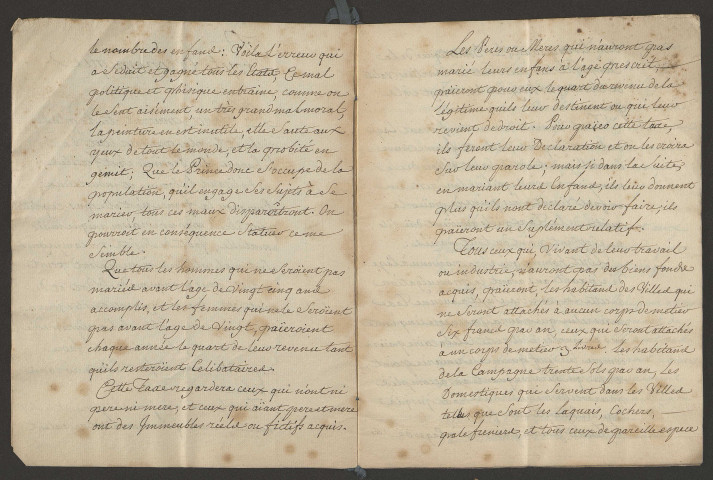 le nombre des enfans: Voila l'erreur qui
a Seduit et gagné tous les Etats. Ce mal
politique et phisique entraine, comme on
le Sent aisément, un très grand mal moral,
la peinture en est inutile, elle Saute aux
yeux de tout le monde, et la probité en
gémit; Que le Prince donc S'occupe de la
population, qu'il engage Ses Sujets à Se
marier, tous ces maux disparoîtront. On
pourroit en conséquence Statuer ce me
Semble.
Que tous les hommes qui ne Seroient pas
mariés avant l'age de Vingt cinq ans
accomplis, et les femmes qui ne le Seroient
pas avant l'age de Vingt, paieroient
chaque année le quart de leur revenu tant
qu'ils resteroient Celibataires.
Cette Taxe regardera ceux qui n'ont ni
pere ni mere, et ceux qui aïant pere et mere
ont des Immeubles réels ou fictifs acquis.
Les Peres ou Meres qui n'auront pas
marié leurs enfans à l'age prescrit
païeront pour eux le quart du revenu de la
légitime qu'ils leur destinent ou qui leur
revient de droit. Pour païer cette taxe,
ils feront leur Déclaration et on les croira
Sur leur parole; mais si dans la suite,
en mariant leurs Enfans, ils leur donnent
plus qu'ils n'ont déclaré devoir faire, ils
païeront un Suplément relatif.
Tous ceux qui, Vivant de leur travail
ou industrie, n'auront pas des biens fonds
acquis, païeront, les habitans des Villes qui
ne Seront attachés à aucun corps de metier
Six francs par an, ceux qui Seront attachés
à un corps de metier 3 livres. les habitans
de la Campagne trente Sols par an, les
Domestiques qui Servent dans les Villes
telles que Sont les laquais, Cochers,
palefreniers, et tous ceux de pareille espece